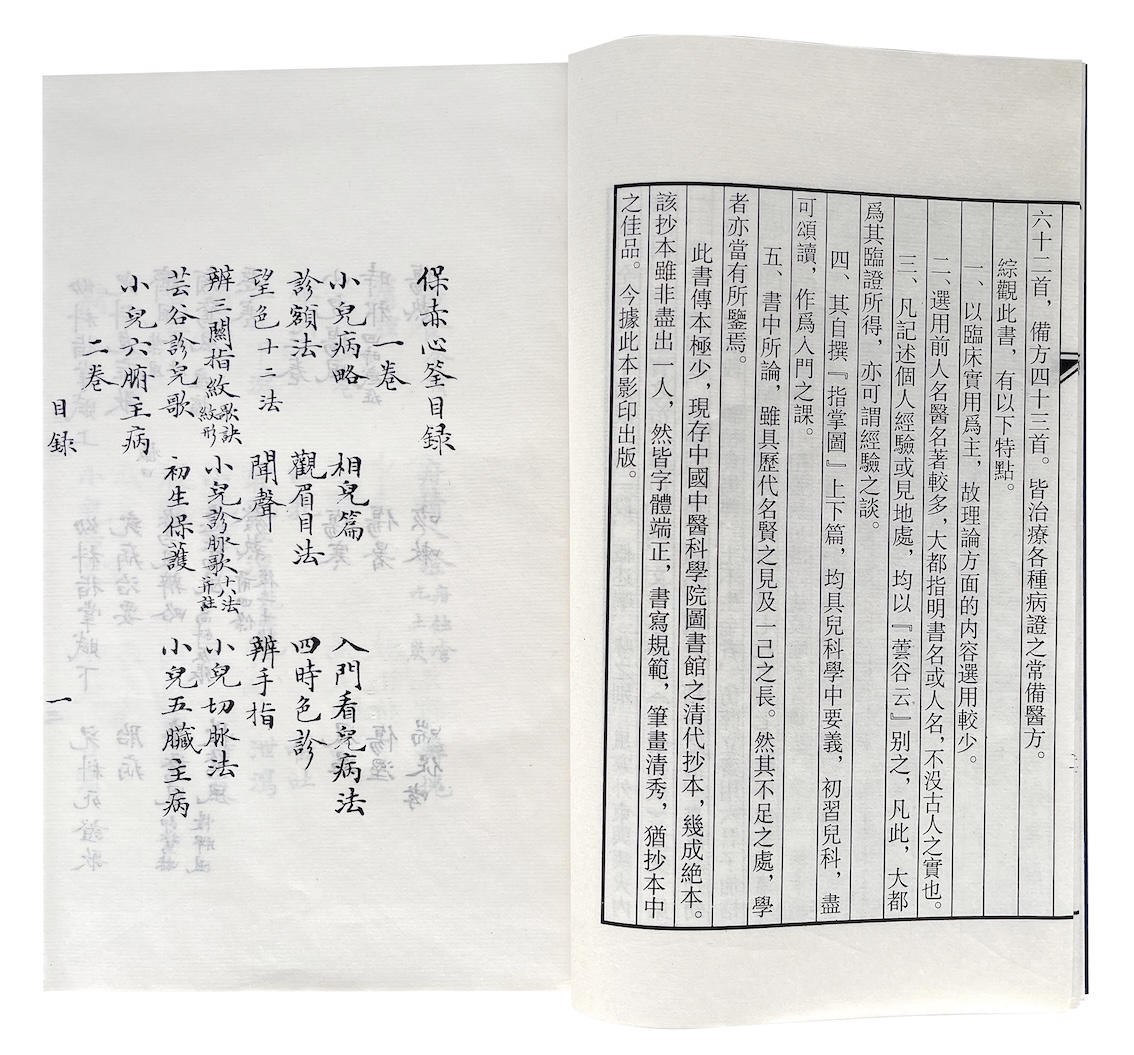 六十二首，備方四十三首。皆治療各種病證之常備醫方。
綜觀此書，有以下特點。
一、以臨床實用爲主，故理論方面的内容選用較少。
二、選用前人名醫名著較多，大都指明書名或人名，不没古人之實也。
三、凡記述個人經驗或見地處，均以『蕓谷云』别之，凡此，大都
爲其臨證所得，亦可謂經驗之談。
四、其自撰『指掌圖』上下篇，均具兒科學中要義，初習兒科，盡
可頌讀，作爲入門之課。
五、書中所論，雖具歷代名賢之見及一己之長。然其不足之處，學
者亦當有所鑒焉。
此書傳本極少，現存中國中醫科學院圖書館之清代抄本，幾成絶本。
該抄本雖非盡出一人，然皆字體端正，書寫規範，筆畫清秀，猶抄本中
之佳品。今據此本影印出版。
保赤心筌目录
一卷
小兒病略 相兒篇 入門看兒病法
診額法 觀眉目法 四時色診
望色十二法 聞聲 辨手指
辨三關指紋歌訣紋形 小兒診脉歌十八法并註 小兒切脉法
芸谷診兒歌 初生保護 小兒五臟主病
小兒六腑主病
二卷
目录 一